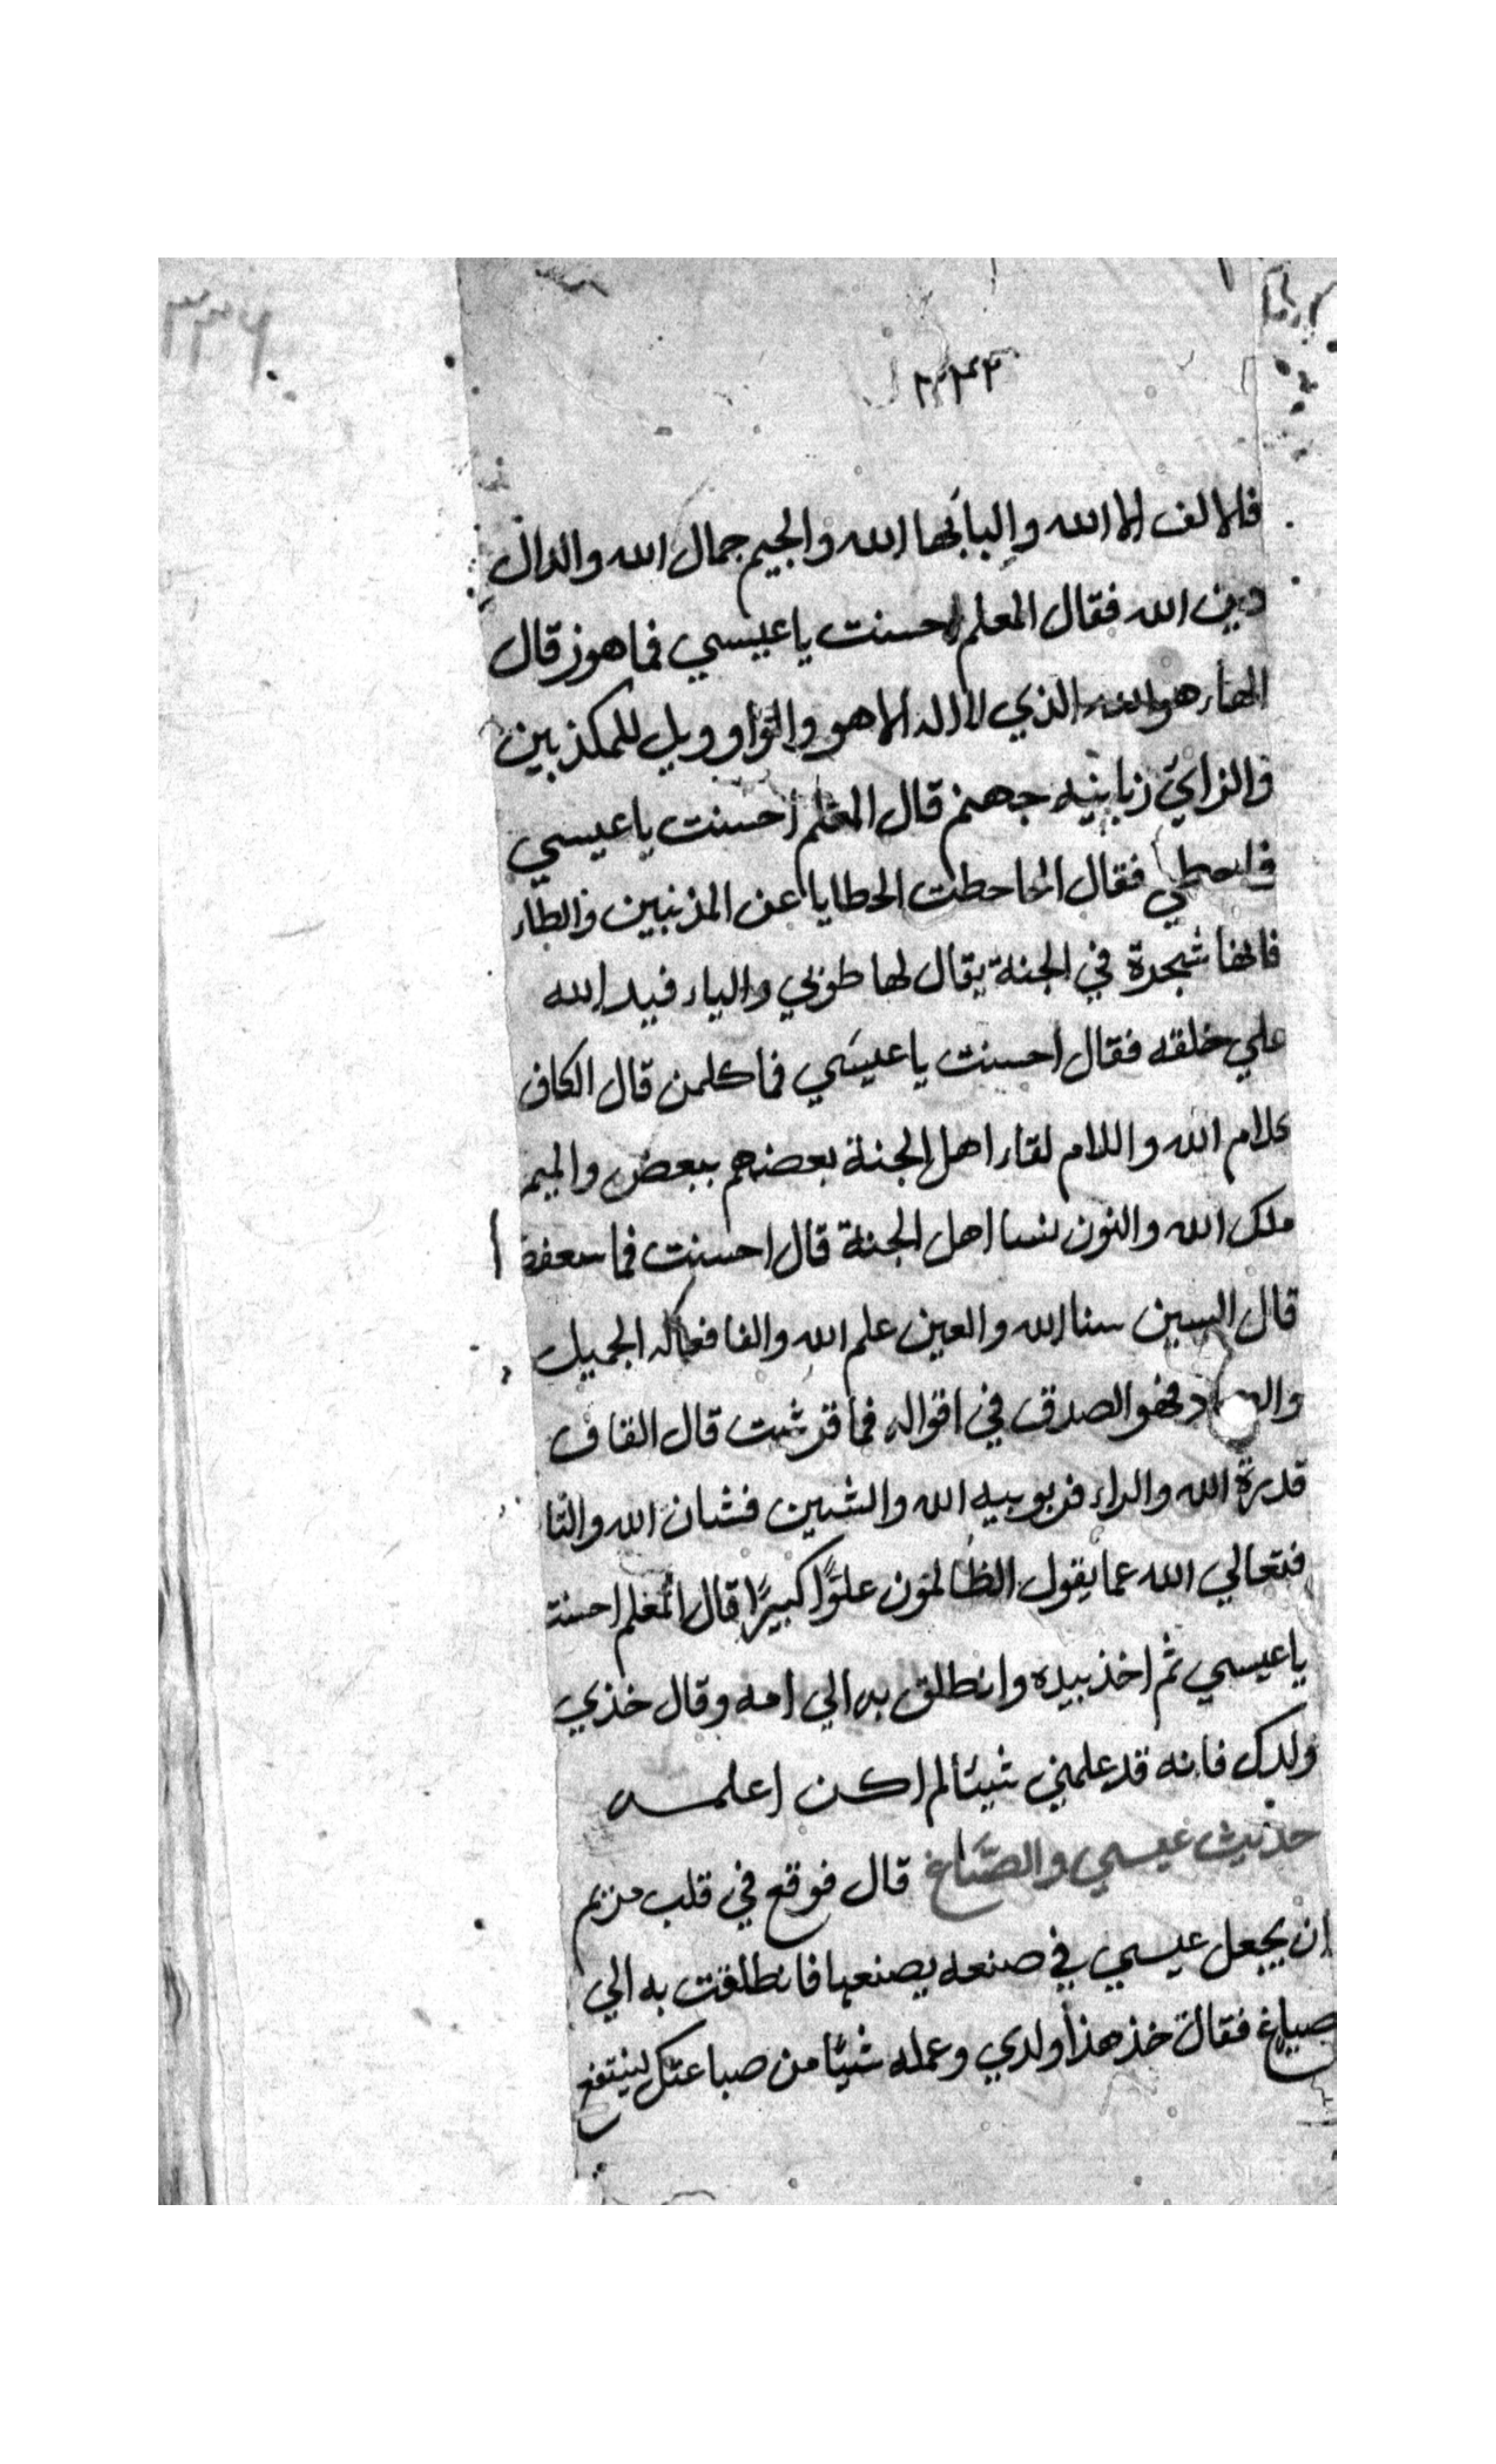 فالالف الا الله والبا بها الله والجيم جمال الله والدال
دين الله فقال المعلم احسنت يا عيسي فما هوز قال
الهاء هو الله الذي لا اله الا هو والواو ويل للمكذبين
والزاي زبانيه جهنم قال المعلم احسنت يا عيسي
فما حطي فقال الحا حطت الخطايا عن المذنبين والطاء
فانها شجرة في الجنة يقال لها طوبي والياء فيد الله
علي خلقه فقال احسنت يا عيسي فما كلمن قال الكاف
كلام الله واللام لقاء اهل الجنة بعضهم ببعض والميم
ملك الله والنون نسا اهل الجنة قال احسنت فما سعفص
قال السين سنا الله والعين علم الله والفا فعاله الجميل
والصاد فهو الصدق في اقواله فما قرشت قال القاف
قدرة الله والراء فربوبيه الله والشين فشان الله والتا
فتعالي الله عما يقول الظالمون علوًا كبيرًا قال المعلم احسنت
يا عيسي ثم اخذ بيده وانطلق به الي امه وقال خذي
ولدك فانه قد علمني شيئا لم اكن اعلمه
حديث عيسي والصّباغ قال فوقع في قلب مريم
ان يجعل عيسي في صنعه يصنعها فانطلقت به الي
صباغ فقالت خذ هذا ولدي وعمله شيئا من صباعتك لينتفع